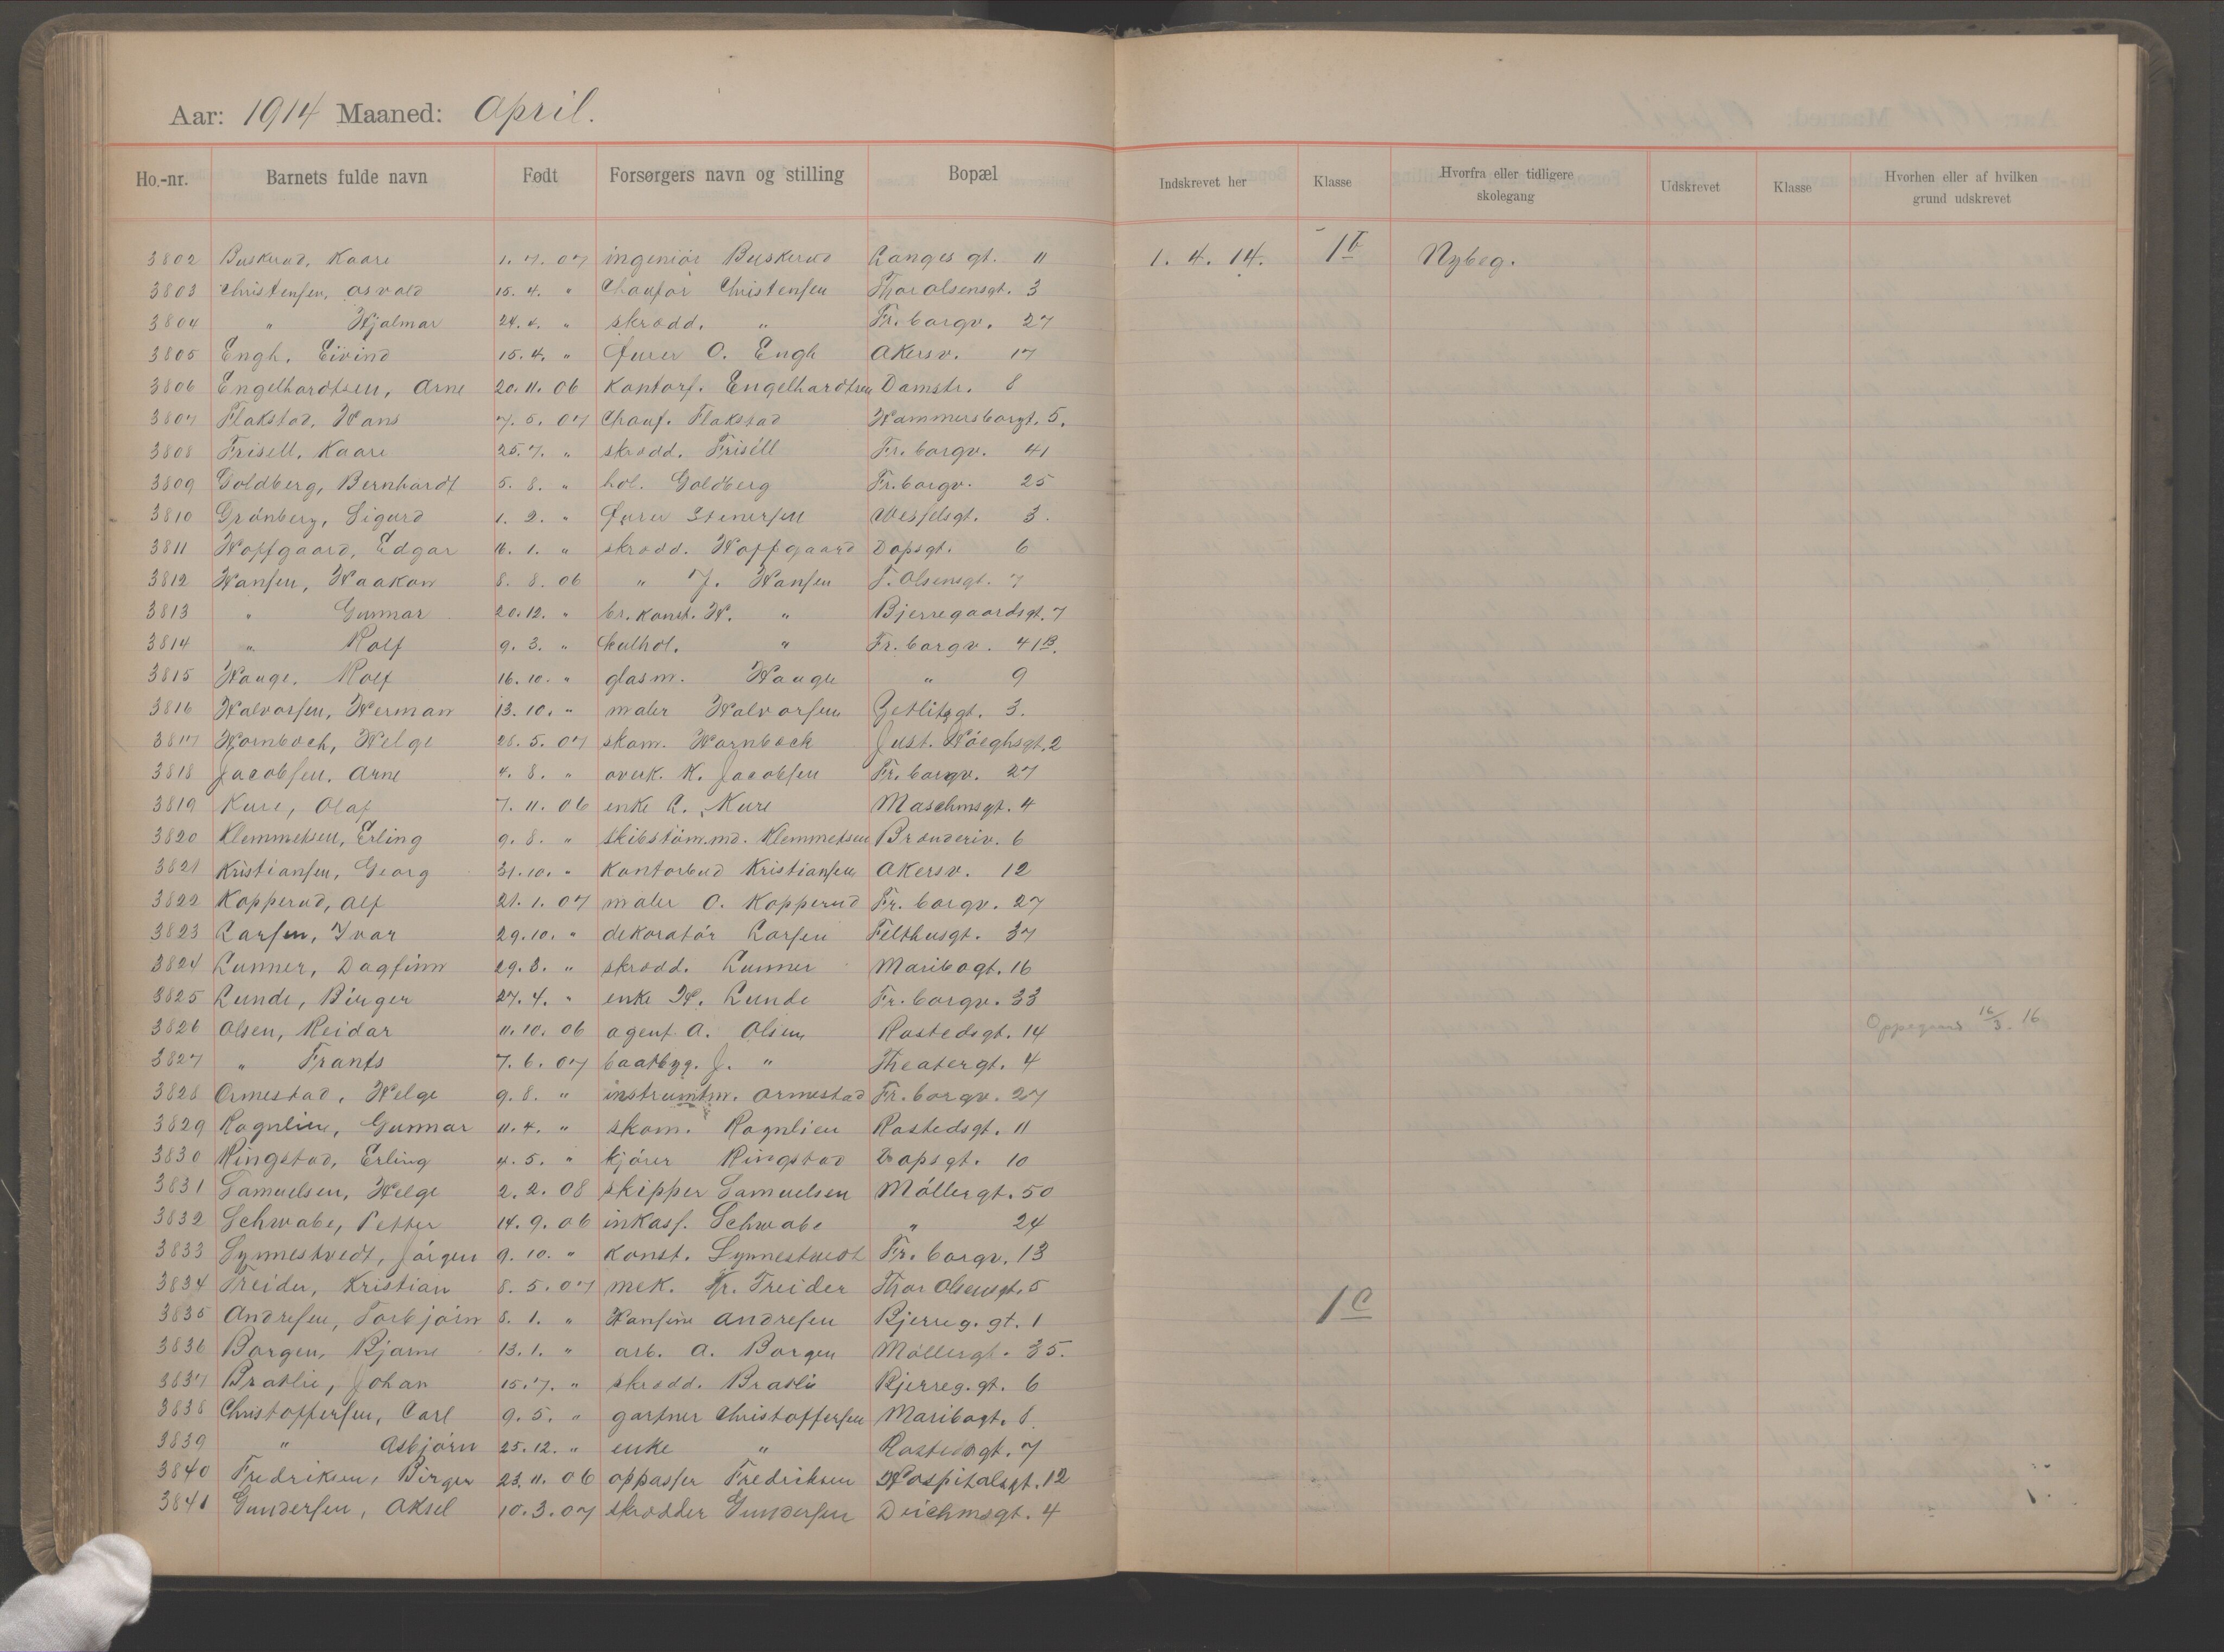 Aar: 1914 Maaned: April.
Ho.-nr. Barnets fulde navn Født Forsørgers navn og stilling Bopæl Indskrevet her Klasse Hvorfra eller tidligere skolegang Udskrevet Klasse Hvorhen eller af hvilken grund udskrevet
3802 Buskerud, Kaare 1. 7. 07 ingeniør Buskerud Langes gt. 11 1. 4. 14. 1b Nybeg.
3803 Christensen, Osvald 15. 4. " Chaufør Christensen Thor Olsensgt. 3
3804 " Hjalmar 24. 4. " skrædd. " Fr. borgv. 27
3805 Engh, Eivind 15. 4. " furer O. Engh Akersv. 17
3806 Engelhardtsen, Arne 20. 11. 06 Kontorf. Engelhardtsen Damstr. 8
3807 Flakstad, Hans 7. 5. 07 Chauf. Flakstad Hammersborgt. 5.
3808 Frisell, Kaare 25. 7. " skrædd. Frisell Fr. borgv. 41
3809 Goldberg, Bernhardt 5. 8. " hdl. Goldberg Fr. borgv. 25
3810 Grønberg, Sigurd 1. 2. " furer Stenersen Wesselsgt. 3.
3811 Hoffgaard, Edgar 16. 1. " skrædd. Hoffgaard Dopsgt. 6
3812 Hansen, Haakon 8. 8. 06 " J. Hansen T. Olsensgt. 7
3813 " Gunnar 20. 12. " br. konst. H. " Bjerregaardsgt. 7
3814 " Rolf 9. 3. " kulhdl. " Fr. borgv. 41B.
3815 Hauge, Rolf 16. 10. " glasm. Hauge " 9
3816 Halvorsen, Herman 13. 10. " maler Halvorsen Zetlitzgt. 3.
3817 Hornbech, Helge 28. 5. 07 skom. Hornbeck Just. Høeghsgt. 2
3818 Jacobsen, Arne 4. 8. " overk. K. Jacobsen Fr. borgv. 27
3819 Kure, Olaf 7. 11. 06 enke L. Kure Maschmsgt. 4
3820 Klemmetsen, Erling 9. 8. " skibstøm.md. Klemmetsen Brænderiv. 6
3821 Kristiansen, Georg 31. 10. " Kontorbud Kristiansen Akersv. 12
3822 Kopperud, Alf 21. 1. 07 maler O. Kopperud Fr. borgv. 27
3823 Larsen, Ivar 29. 10. " dekoratør Larsen Filthusgt. 37
3824 Lunner, Dagfinn 29. 3. " skrædd. Lunner Maribogt. 16
3825 Lunde, Birger 27. 4. " enke H. Lunde Fr. borgv. 33
3826 Olsen, Reidar 11. 10. 06 agent A. Olsen Rostedsgt. 14 Oppegaard 16/3. 16
3827 " Frants 7. 6. 07 baatbyg. J. " Theatergt. 4
3828 Ormestad, Helge 9. 8. " instrumtm. Ormestad Fr. borgv. 27
3829 Rognlien, Gunnar 11. 4. " skom. Rognlien Rostedsgt. 11
3830 Ringstad, Erling 4. 5. " kjører Ringstad Dopsgt. 10
3831 Samuelsen, Helge 2. 2. 08 skipper Samuelsen Møllergt. 50
3832 Schwabe, Petter 14. 9. 06 inkass. Schwabe " 24
3833 Synnestvedt, Jørgen 9. 10. " konst. Synnestvedt Fr. borgv. 13
3834 Treider, Kristian 8. 5. 07 mek. Kr. Treider Thor Olsensgt. 5
3835 Andresen, Torbjørn 8. 1. " Hansine Andresen Bjerreg. gt. 1 1c
3836 Borgen, Bjarne 13. 1. " arb. A. Borgen Møllergt. 35.
3837 Bratlie, Johan 15. 7. " skrædd. Bratlie Bjerreg. gt. 6
3838 Christoffersen, Carl 9. 5. " gartner Christoffersen Maribogt. 8
3839 " Asbjørn 25. 12. " enke " Rostedsgt. 7
3840 Fredriksen, Birger 23. 11. 06 oppasser Fredriksen Hospitalsgt. 12
3841 Gundersen, Aksel 10. 3. 07 skrædder Gundersen Deichmsgt. 4